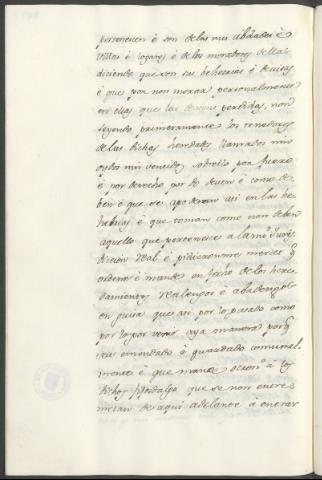 pertenecen è son de los mis abadales è
villas è logares è de los moradores dellas
diciendo que son sus behetrias è devisas
è que por non morar personalmente
en ellas que las deven perdidas, non
seyendo primeramente los tenedores
de las dichas heredades llamados nin
oydos nin vencidos sobrello por fuero
è por derecho, por do deven è como de-
ben è que se apoderan asi en las be-
hetrias è que toman como non deben
aquello que pertenece a la mi juris-
diccion Real è pidieronme merced q
ordene è mande en fecho de los here-
damientos realengos è abadengos
en guisa que asi por lo pasado como
por lo por venir aya manera porq
sea emendado è guardado comunal-
mente è que mande a los
dichos fijosdalgo que se non entre-
metan de aqui adelante à entrar